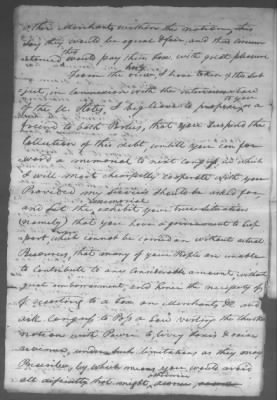 other Merchants within the nation, this
Say they would be equal & fair, and that amount
this
would pay their tax, with great pleasure
From the view I have taken of the sub
ject, in connexion with the
of the U. States, I beg leave to propose, as a
to both Parties, that you suspend the
Collection of this debt, untill you can for
ward a memorial to next congress, in which
I will most cheerfully cooperate with you
Provided my services should be asked for
memorial
and let the exhibit your true situation
(namely) that you have a government to sup
port, which cannot be carried on without actual
Resources, that many of your People are unable
to contribute to any considerable amount, without
great embarrassment, and hence the necessity of
resorting to a tax on Merchants &c and
ask congress to Pass a Law vesting the
nation with Power to levy taxes & raise
revenues, under such limitations as they may
Prescribe, by which means you would avoid
all difficulty that might